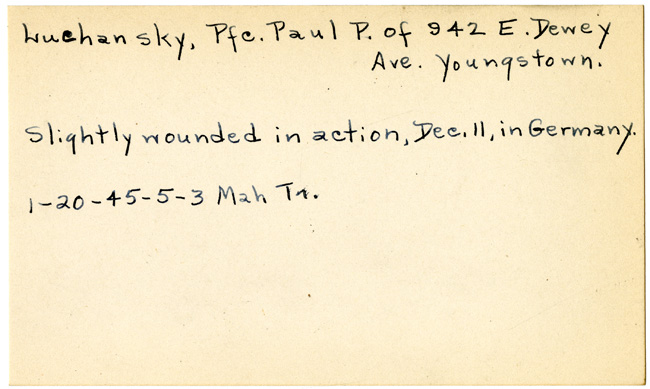 Luchansky, Pfc. Paul P. of 942 E. Dewey
Ave. Youngstown.
Slightly wounded in action, Dec. 11, in Germany.
1-20-45-5-3 Mah Tr.